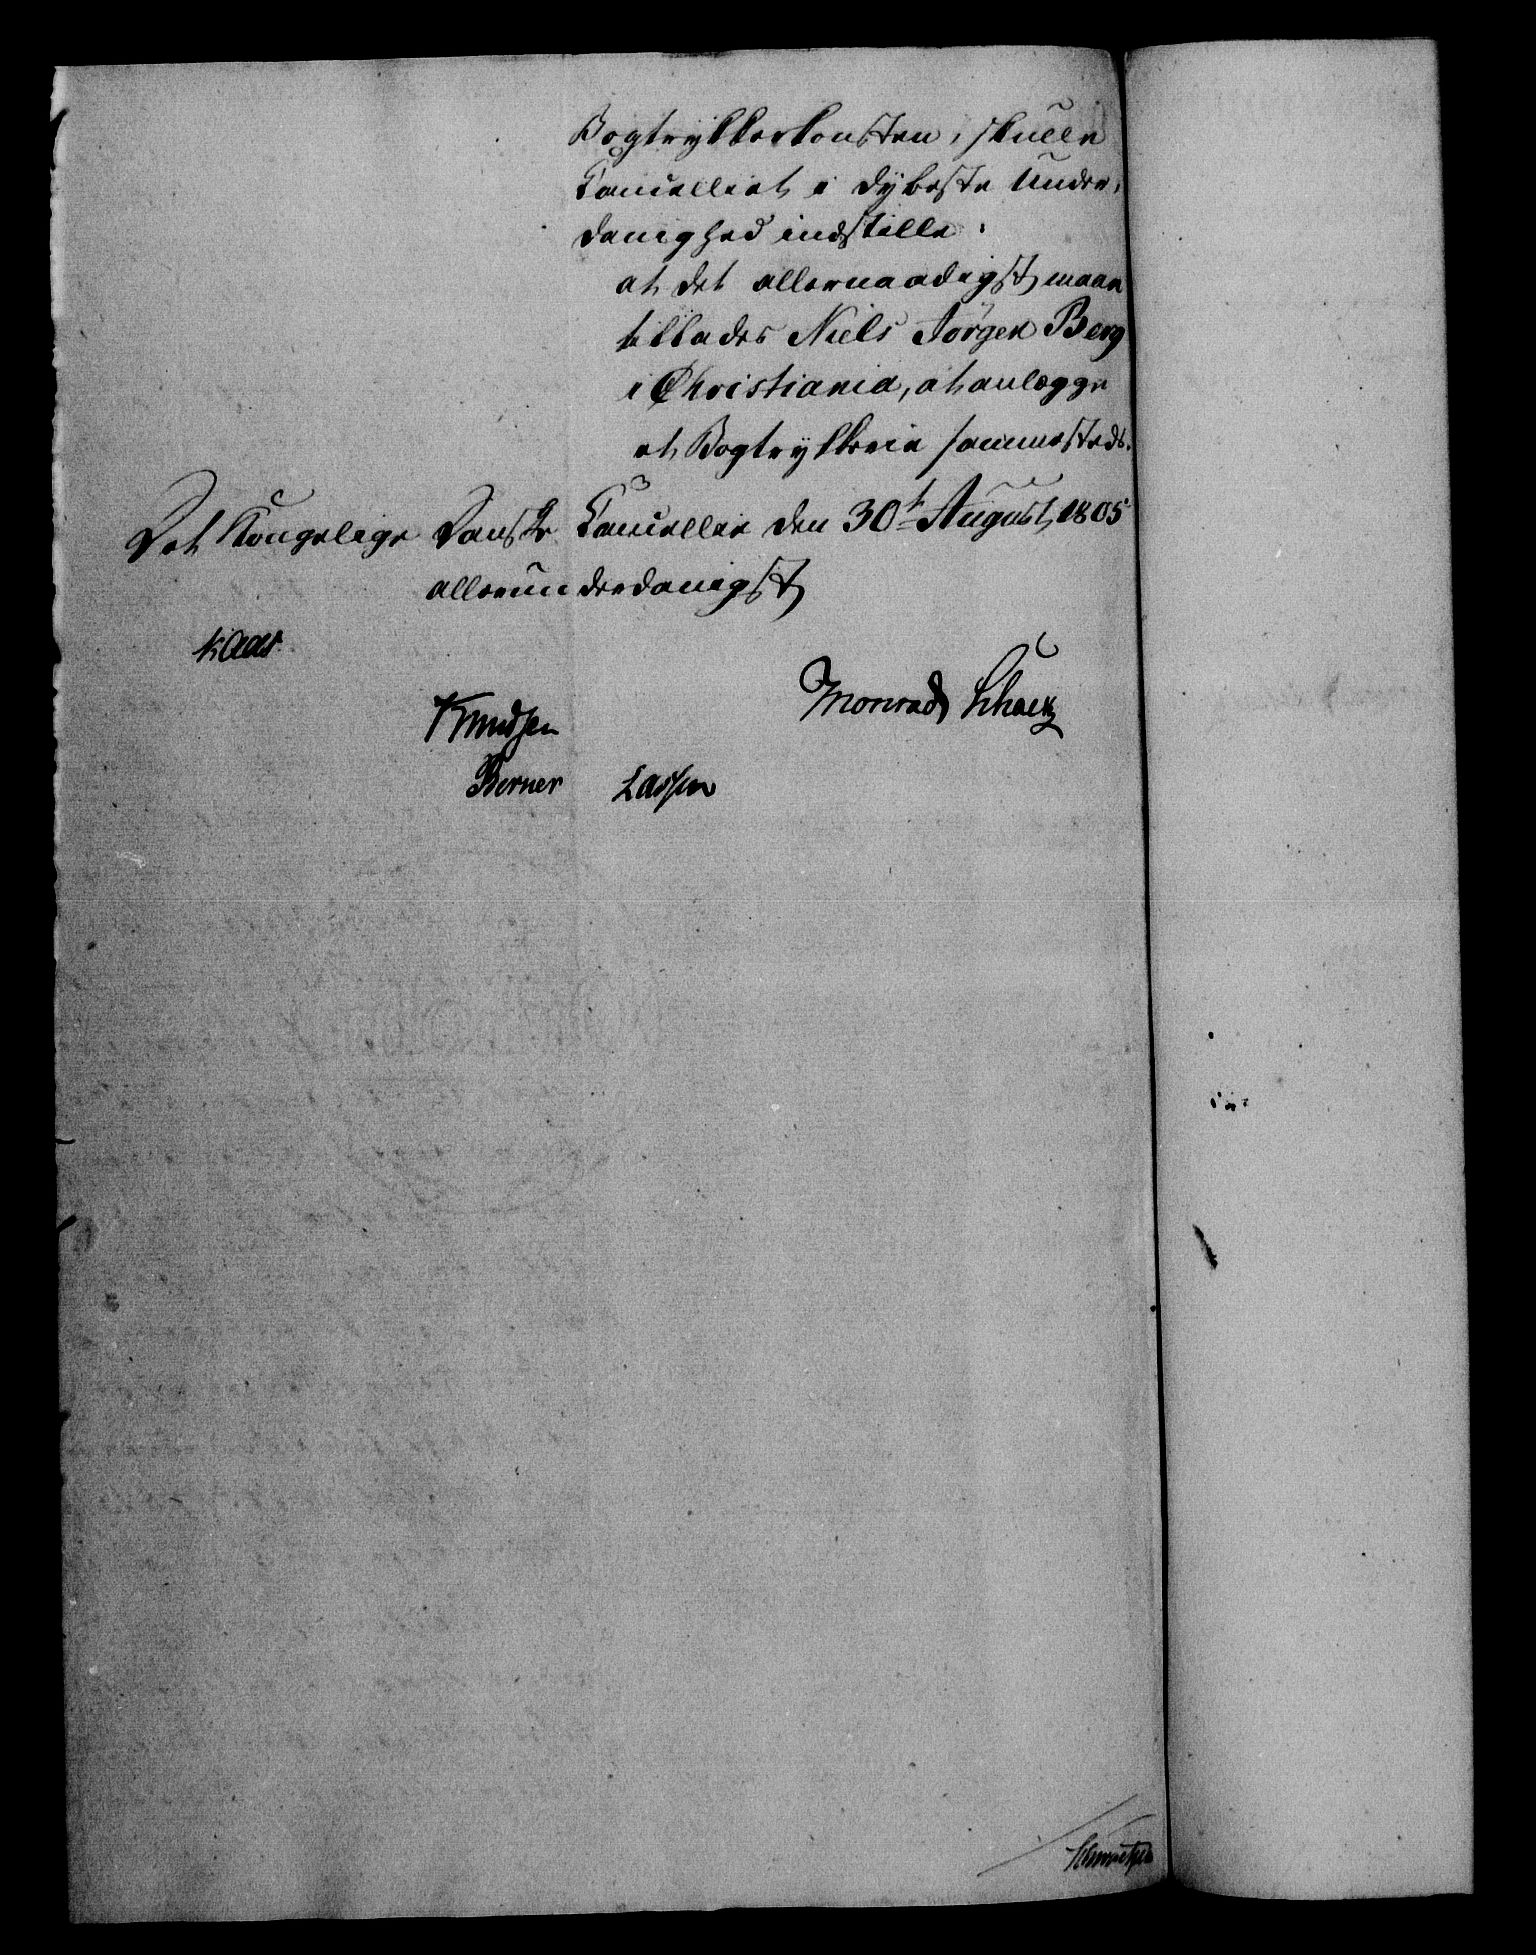 Bogtrykkerkonsten, skulle
Cancelliet i dybeste Under,
danighed indstille:
at det allernaadigst maae
tillades Niels Jörgen Berg
i Christiania, at anlægge
et Bogtrykkerie sammesteds.
Det Kongelige Danske Cancellie den 30t August 1805
allerunderdanigst
Kaas
Monrad Schack
Knudsen
Berner Lassen